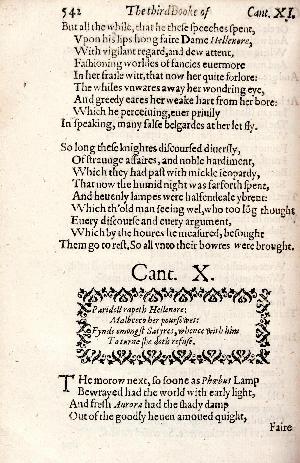 542 The third Booke of Cant. XI.
But all the while, that he these speeches spent,
Vpon his lips hong faire Dame Hellenore,
With vigilant regard, and dew attent,
Fashioning worldes of fancies euermore
In her fraile witt, that now her quite forlore:
The whiles vnwares away her wondring eye,
And greedy eares her weake hart from her bore:
Which he perceiuing, euer priuily
In speaking, many false belgardes at her let fly.
So long these knightes discoursed diuersly,
Of straunge affaires, and noble hardiment,
Which they had past with mickle ieopardy,
That now the humid night was farforth spent,
And heuenly lampes were halfendeale ybrent:
Which th'old man seeing wel, who too lõg thought
Euery discourse and euery argument,
Which by the houres he measured, besought
Them go to rest, So all vnto their bowres were brought.
Cant. X.
Paridell rapeth Hellenore:
Malbecco her poursewes:
Fynds emongst Satyres, whence with him
To turne she doth refuse.
THe morow next, so soone as Phœbus Lamp
Bewrayed had the world with early light,
And fresh Aurora had the shady damp
Out of the goodly heuen amoued quight,
Faire